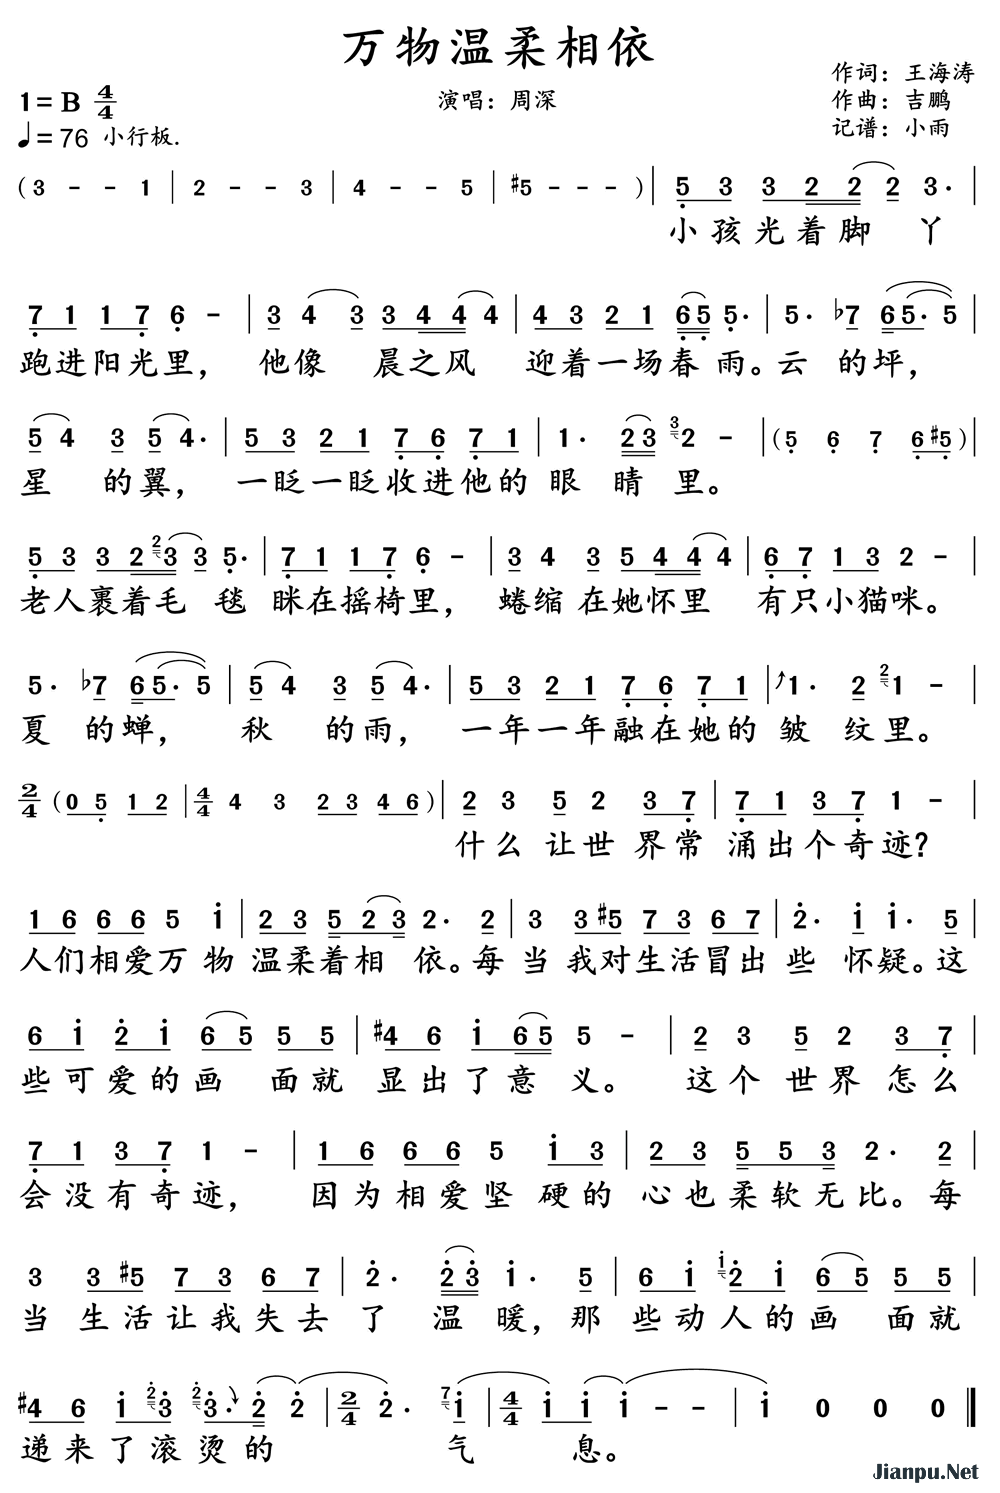 万物温柔相依
作词：王海涛
1=B 4/4 演唱：周深 作曲：吉鹏
♩=76 小行板. 记谱：小雨
(3 - - 1 | 2 - - 3 | 4 - - 5 | #5 - - - ) | 5 3 3 2 2 2 3. |
小孩光着脚 丫
7 1 1 7 6 - | 3 4 3 3 4 4 4 | 4 3 2 1 6 5 5. | 5. b7 6 5. 5 |
跑进阳光里， 他像 晨之风 迎着一场春 雨。云 的坪，
5 4 3 5 4. | 5 3 2 1 7 6 7 1 | 1. 2 3 3 2 - | (5 6 7 6 #5) |
星 的翼， 一眨一眨收进他的 眼 睛 里。
5 3 3 2 2 3 3 5. | 7 1 1 7 6 - | 3 4 3 5 4 4 4 | 6 7 1 3 2 - |
老人裹着毛 毯 眯在摇椅里， 蜷缩 在她怀里 有只小猫咪。
5. b7 6 5. 5 | 5 4 3 5 4. | 5 3 2 1 7 6 7 1 | 1. 2 2 1 - |
夏 的蝉， 秋 的雨， 一年一年融在她的 皱 纹里。
2/4 (0 5 1 2 | 4/4 4 3 2 3 4 6) | 2 3 5 2 3 7 | 7 1 3 7 1 - |
什么 让世 界常 涌出个奇迹?
1 6 6 6 5 i | 2 3 5 2 3 2. 2 | 3 3 #5 7 3 6 7 | 2. i i. 5 |
人们相爱万 物 温柔着相 依。每 当 我对生活冒出 些 怀疑。这
6 i 2 i 6 5 5 5 | #4 6 i 6 5 5 - | 2 3 5 2 3 7 |
些可爱的画 面就 显出了意 义。 这个 世界 怎么
7 1 3 7 1 - | 1 6 6 6 5 i 3 | 2 3 5 5 3 2. 2 |
会没有奇迹， 因为相爱坚 硬的 心也柔软无比。每
3 3 #5 7 3 6 7 | 2. 2 3 i. 5 | 6 i i 2 i 6 5 5 5 |
当 生活让我失去 了 温 暖，那 些动人的画 面就
#4 6 i 2 3 2 3. 2 2 | 2/4 2. 7 i | 4/4 i i i - - | i 0 0 0 ‖
递来了滚烫的 气 息。
Jianpu.Net